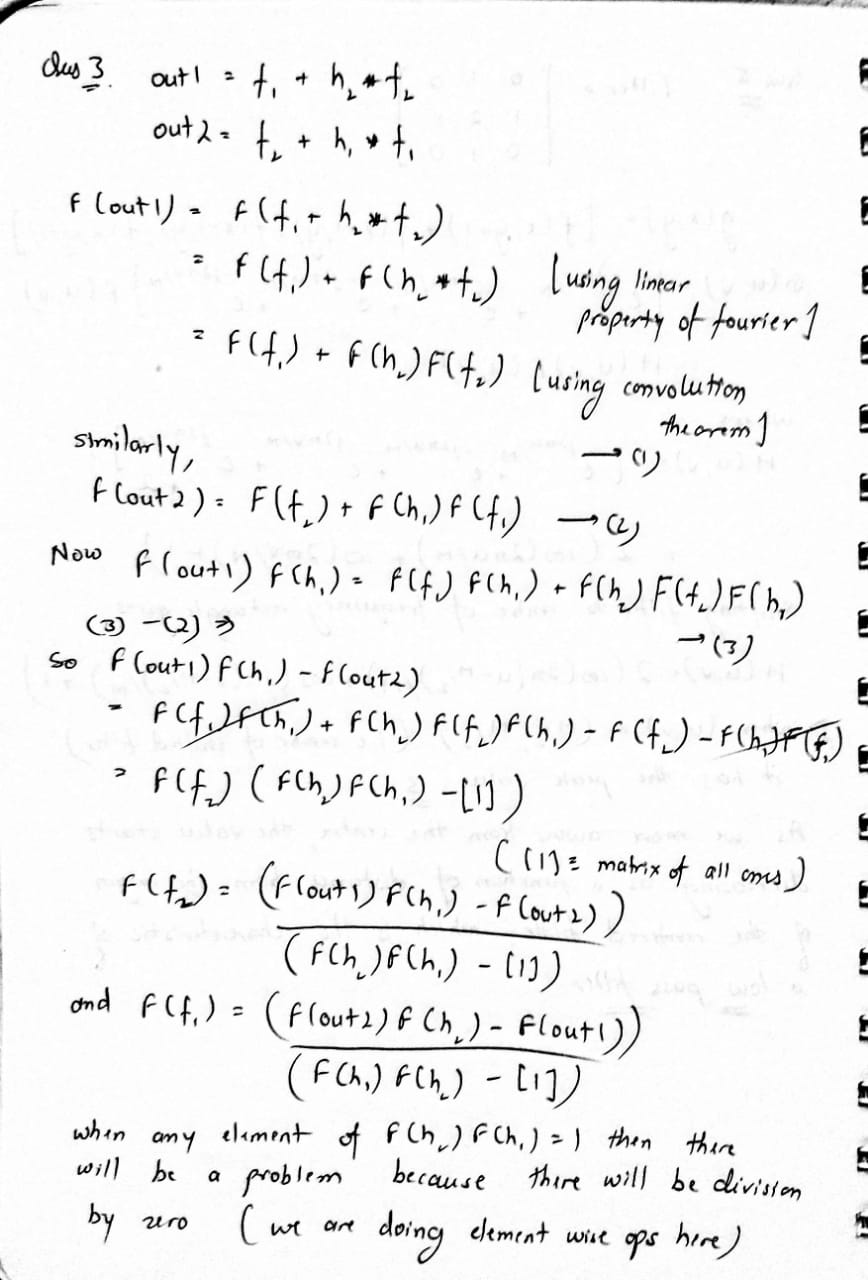 Ques 3. out1 = f₁ + h₂ * f₂
out2 = f₂ + h₁ * f₁
F(out1) = F(f₁ + h₂ * f₂)
= F(f₁) + F(h₂ * f₂) [using linear
property of fourier]
= F(f₁) + F(h₂)F(f₂) [using convolution
theorem]
→ (1)
similarly,
F(out2) = F(f₂) + F(h₁)F(f₁) → (2)
Now F(out1) F(h₁) = F(f₁) F(h₁) + F(h₂)F(f₂)F(h₁)
→ (3)
(3) - (2) ⇒
So F(out1)F(h₁) - F(out2)
= F(f₁)F(h₁) + F(h₂) F(f₂)F(h₁) - F(f₂) - F(h₁)F(f₁)
= F(f₂) (F(h₂)F(h₁) - [1])
([1] = matrix of all ones)
F(f₂) = (F(out1) F(h₁) - F(out2))
(F(h₂)F(h₁) - [1])
and F(f₁) = (F(out2) F(h₂) - F(out1))
(F(h₁) F(h₂) - [1])
when any element of F(h₂) F(h₁) = 1 then there
will be a problem because there will be division
by zero (we are doing element wise ops here)